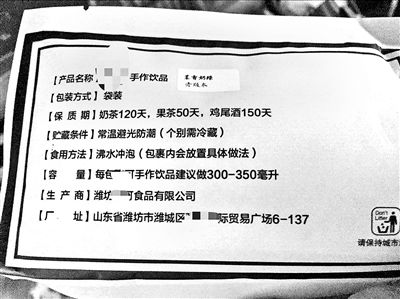 【产品名称】 手作饮品
【包装方式】 袋装
【保 质 期】奶茶120天，果茶50天，鸡尾酒150天
【贮藏条件】常温避光防潮（个别需冷藏）
【食用方法】沸水冲泡（包裹内会放置具体做法）
【容 量】每包 可手作饮品建议做300-350毫升
【生 产 商】潍坊 可食品有限公司
【厂 址】山东省潍坊市潍城区 际贸易广场6-137
Don't Litter
请保持城市